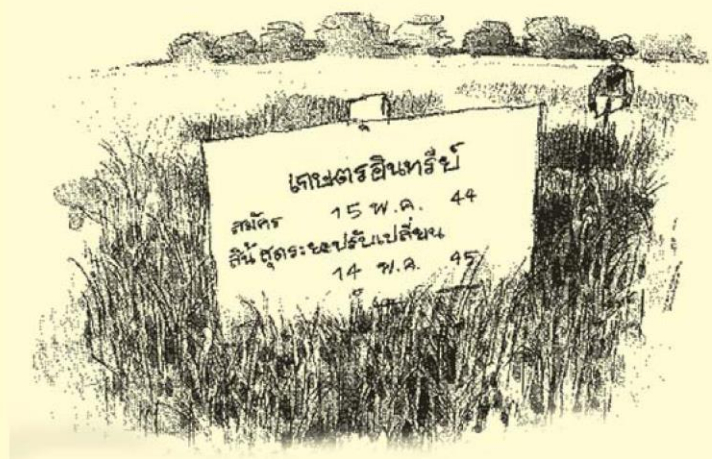 เกษตรอินทรีย์
สมัคร 15 พ.ค. 44
สิ้นสุดระยะปรับเปลี่ยน
14 พ.ค. 45